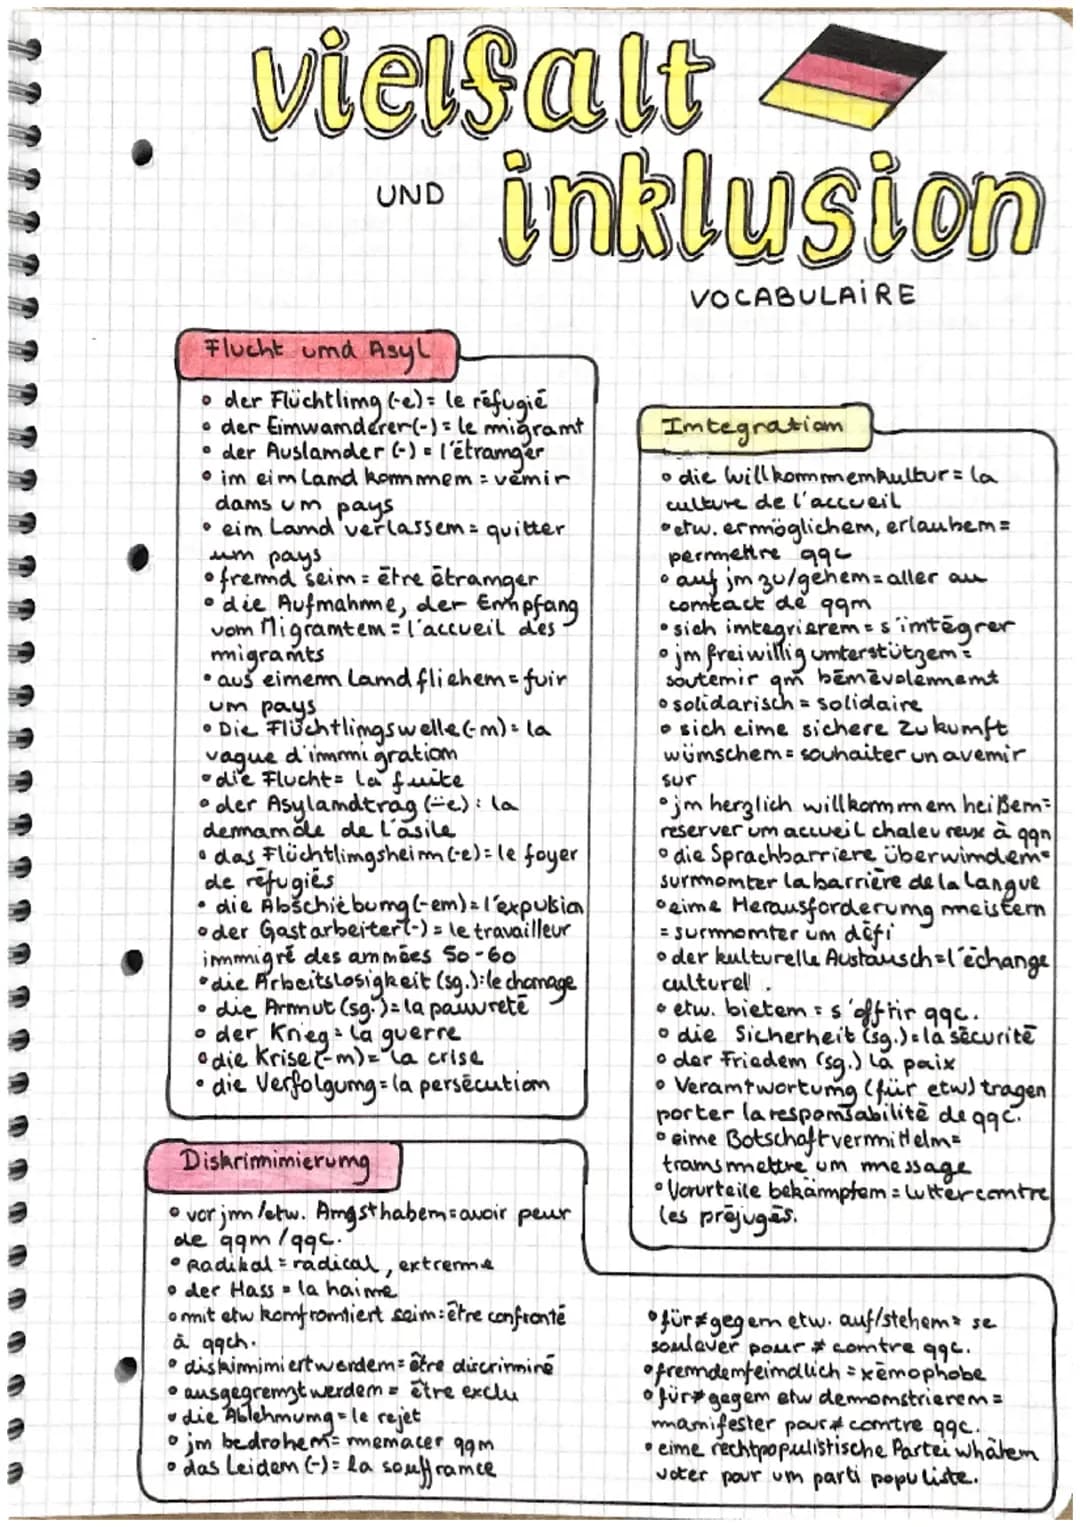 vielfalt
UND inklusion
VOCABULAIRE
Flucht und Asyl
• der Flüchtling (-e) = le réfugié
• der Einwanderer (-) = le migrant
• der Auslander (-) = l'étranger
• in ein Land kommen = venir
dans un pays
• ein Land verlassen = quitter
un pays
• fremd sein = être étranger
• die Aufnahme, der Empfang
vom Migranten = l'accueil des
migrants
• aus einem Land fliehen = fuir
un pays
• Die Flüchtlingswelle (-n) = la
vague d'immigration
• die Flucht = la fuite
• der Asylandtrag (-̈e) : la
demande de l'asile
• das Flüchtlingsheim (-e) = le foyer
de réfugiés
• die Abschiebung (-en) = l'expulsion
• der Gastarbeiter (-) = le travailleur
immigré des années 50-60
• die Arbeitslosigkeit (sg.) : le chomage
• die Armut (sg.) = la pauvreté
• der Krieg = la guerre
• die Krise (-n) = la crise
• die Verfolgung = la persécution
Integration
• die Willkommenkultur = la
culture de l'accueil
• etw. ermöglichen, erlauben =
permettre qqc
• auf jm zu/gehen = aller au
contact de qqn
• sich integrieren = s'intégrer
• jm freiwillig unterstützen =
soutenir qn bénévolement
• solidarisch = solidaire
• sich eine sichere Zukunft
wünschen = souhaiter un avenir
sur
• jm herzlich willkommen heißen =
reserver un accueil chaleureux à qqn
• die Sprachbarriere überwinden =
surmonter la barrière de la langue
• eine Herausforderung meistern
= surmonter un défi
• der kulturelle Austausch = l'échange
culturel.
• etw. bieten = s'offrir qqc.
• die Sicherheit (sg.) = la sécurité
• der Frieden (sg.) la paix
• Verantwortung (für etw) tragen
porter la responsabilité de qqc.
• eine Botschaft vermitteln =
transmettre un message
• Vorurteile bekämpfen = lutter contre
les préjugés.
Diskriminierung
• vor jm/etw. Angst haben = avoir peur
de qqn/qqc.
• Radikal = radical, extreme
• der Hass = la haine
• mit etw konfrontiert sein = être confronté
à qqch.
• diskiminiert werden = être discriminé
• ausgegrenzt werden = être exclu
• die Ablehnung = le rejet
• jm bedrohen = menacer qqn
• das Leiden (-) = la souffrance
• für ≠ gegen etw. auf/stehen = se
soulever pour ≠ contre qqc.
• fremdenfeindlich = xénophobe
• für ≠ gegen etw demonstrieren =
manifester pour ≠ contre qqc.
• eine rechtpopulistische Partei whälen
voter pour un parti populiste.